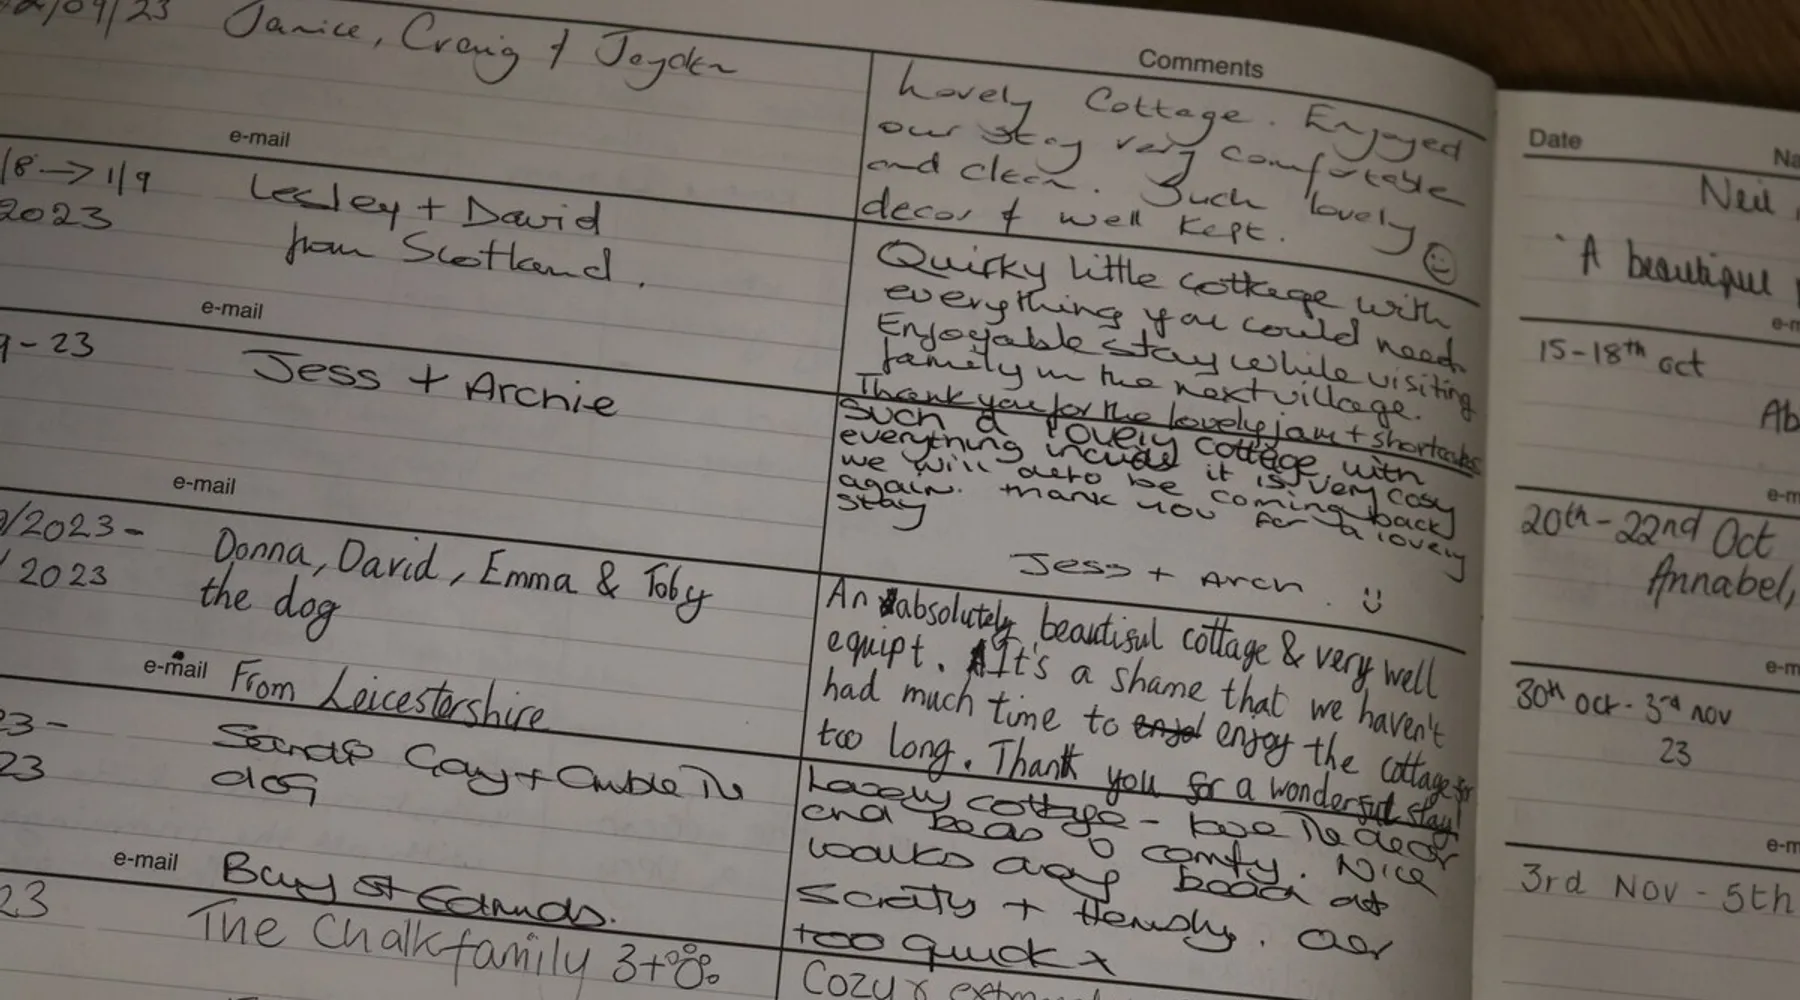 /09/23 Janice, Craig & Jayden
Comments
Lovely Cottage. Enjoyed
our stay very comfortable
and clean. Such lovely
decor & well kept.
e-mail
/8 → 1/9
2023
Lesley + David
from Scotland.
Quirky little cottage with
everything you could need.
Enjoyable stay while visiting
family in the next village.
Thank you for the lovely jam + shortcakes
e-mail
9-23
Jess + Archie
Such a lovely cottage with
everything it is very cosy
we will be coming back
again. thank you for a lovely
stay
Jess + Arch
e-mail
/2023-
/2023
Donna, David, Emma & Toby
the dog
An absolutely beautiful cottage & very well
equipt. It's a shame that we haven't
had much time to enjoy the cottage for
too long. Thank you for a wonderful stay!
e-mail From Leicestershire
23-
23
Gary + The
dog
Lovely cottage - love The decor
and beds comfy. Nice
walks dog beach at
+ Hemsby. Over
too quick x
e-mail Bury St Edmunds.
23
The Chalk family 3+
Cozy &
Date
Na
Neil
'A beautiful
e-m
15-18th oct
Ab
e-m
20th-22nd Oct
Annabel,
e-m
30th oct - 3rd nov
23
e-m
3rd Nov - 5th